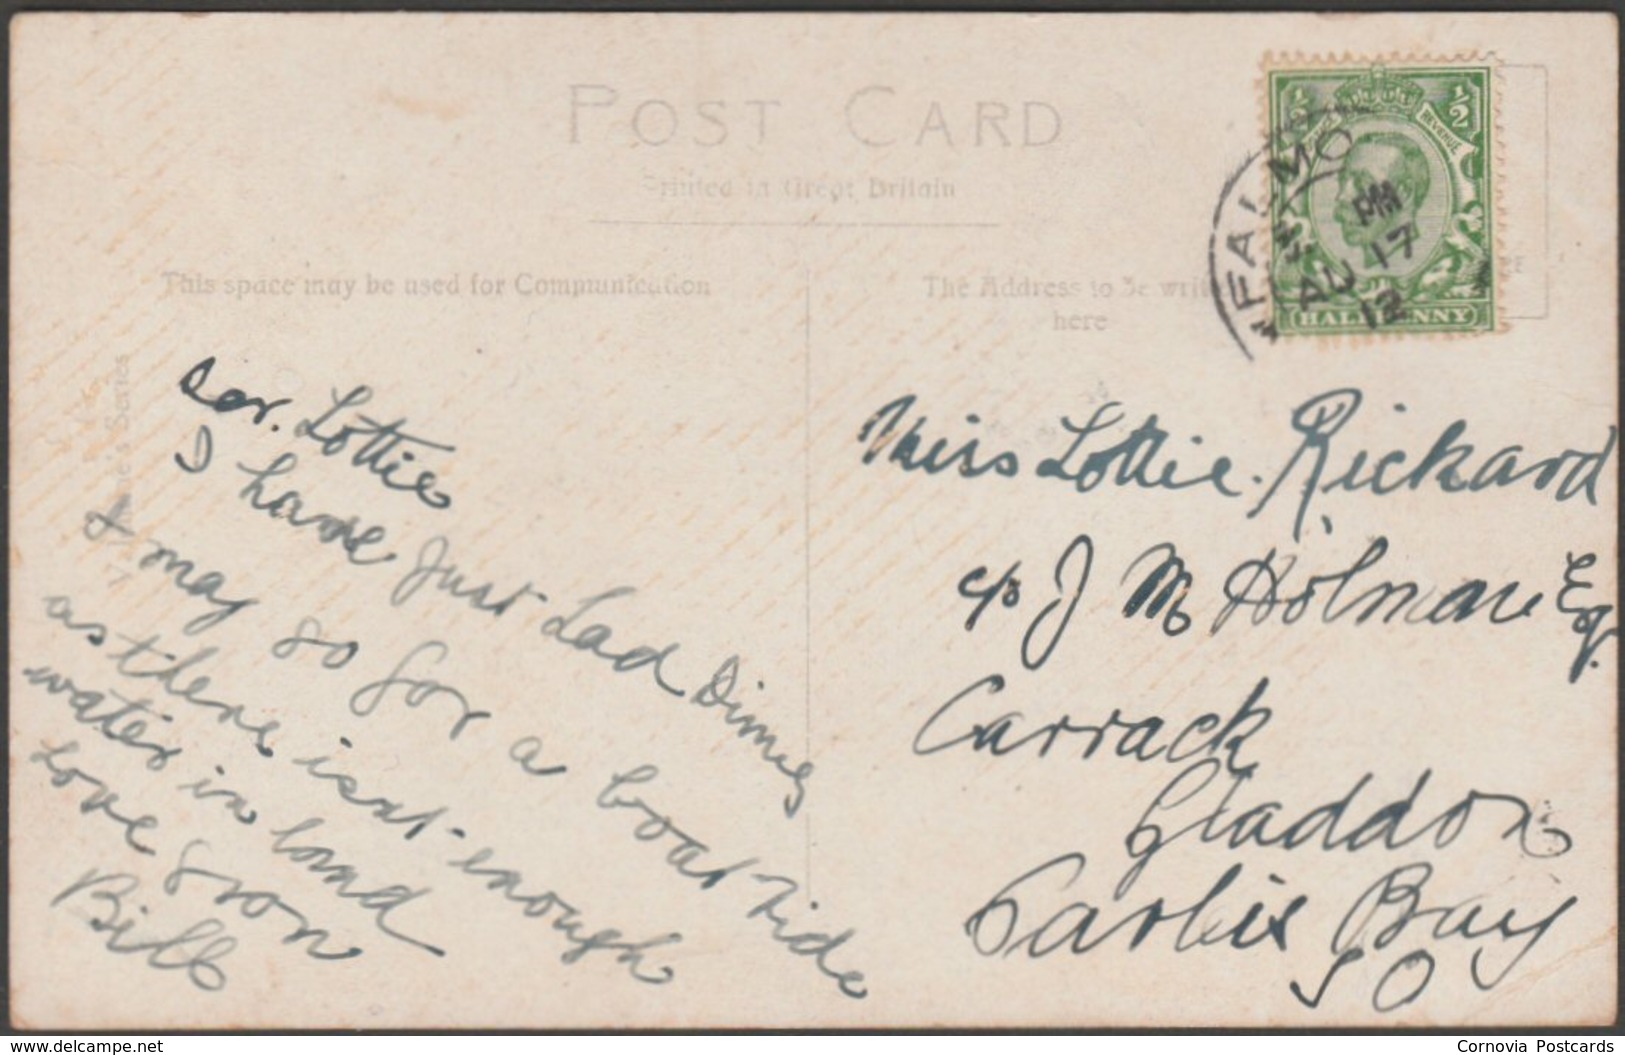 POST CARD
Printed in Great Britain
This space may be used for Communication
The Address to be writ
here
FALMO
PM
AU 17
12
REVENUE
½ ½
HALFPENNY
's Series
Dor. Lottie
I have Just Lad Dinner
& may go for a boat ride
as there isnt enough
water in land
Love from
Bill
Miss Lottie Rickard
c/o J M Holman Esq.
Carrack
Gladdon
Carbis Bay
S O
www.delcampe.net
Cornovia Postcards